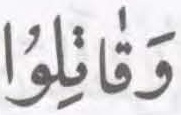 وَقٰاتِلُوا